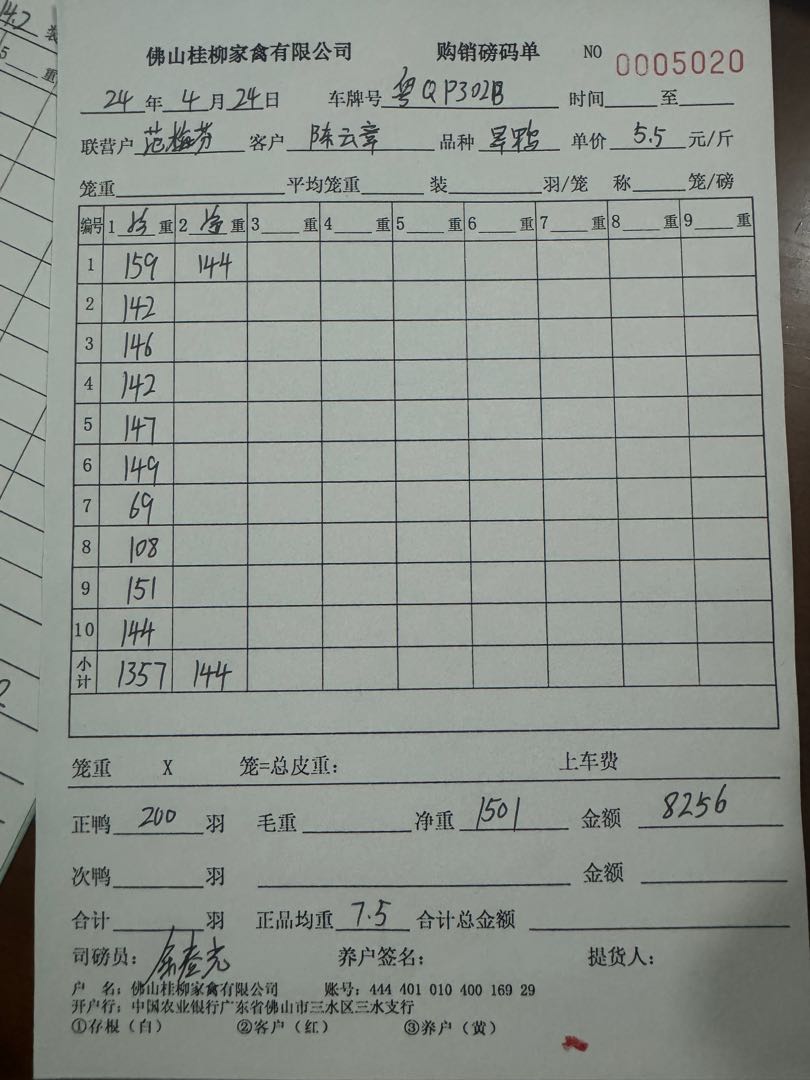 佛山桂柳家禽有限公司 购销磅码单 NO 0005020
24 年 4 月 24 日 车牌号 粤QP302B 时间 至
联营户 范梅芬 客户 陈云章 品种 旱鸭 单价 5.5 元/斤
笼重 平均笼重 装 羽/笼 称 笼/磅
编号 1 净 重 2 净 重 3 重 4 重 5 重 6 重 7 重 8 重 9 重
1 159 144
2 142
3 146
4 142
5 147
6 149
7 69
8 108
9 151
10 144
小计 1357 144
笼重 X 笼=总皮重: 上车费
正鸭 200 羽 毛重 净重 1501 金额 8256
次鸭 羽 金额
合计 羽 正品均重 7.5 合计总金额
司磅员: 养户签名: 提货人:
户 名: 佛山桂柳家禽有限公司 账号: 444 401 010 400 169 29
开户行: 中国农业银行广东省佛山市三水区三水支行
①存根(白) ②客户(红) ③养户(黄)
14.2 装
5 重